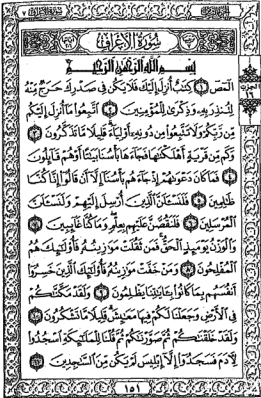 سُورَةُ الأَعْرَافِ
بِسْمِ اللَّهِ الرَّحْمَٰنِ الرَّحِيمِ
الٓمٓصٓ ١ كِتَٰبٌ أُنزِلَ إِلَيْكَ فَلَا يَكُن فِى صَدْرِكَ حَرَجٌ مِّنْهُ
لِتُنذِرَ بِهِۦ وَذِكْرَىٰ لِلْمُؤْمِنِينَ ٢ ٱتَّبِعُوا۟ مَآ أُنزِلَ إِلَيْكُم
مِّن رَّبِّكُمْ وَلَا تَتَّبِعُوا۟ مِن دُونِهِۦٓ أَوْلِيَآءَ قَلِيلًا مَّا تَذَكَّرُونَ ٣
وَكَم مِّن قَرْيَةٍ أَهْلَكْنَٰهَا فَجَآءَهَا بَأْسُنَا بَيَٰتًا أَوْ هُمْ قَآئِلُونَ
٤ فَمَا كَانَ دَعْوَىٰهُمْ إِذْ جَآءَهُم بَأْسُنَآ إِلَّآ أَن قَالُوٓا۟ إِنَّا كُنَّا
ظَٰلِمِينَ ٥ فَلَنَسْـَٔلَنَّ ٱلَّذِينَ أُرْسِلَ إِلَيْهِمْ وَلَنَسْـَٔلَنَّ
ٱلْمُرْسَلِينَ ٦ فَلَنَقُصَّنَّ عَلَيْهِم بِعِلْمٍ وَمَا كُنَّا غَآئِبِينَ ٧
وَٱلْوَزْنُ يَوْمَئِذٍ ٱلْحَقُّ فَمَن ثَقُلَتْ مَوَٰزِينُهُۥ فَأُو۟لَٰٓئِكَ هُمُ
ٱلْمُفْلِحُونَ ٨ وَمَنْ خَفَّتْ مَوَٰزِينُهُۥ فَأُو۟لَٰٓئِكَ ٱلَّذِينَ خَسِرُوٓا۟
أَنفُسَهُم بِمَا كَانُوا۟ بِـَٔايَٰتِنَا يَظْلِمُونَ ٩ وَلَقَدْ مَكَّنَّٰكُمْ
فِى ٱلْأَرْضِ وَجَعَلْنَا لَكُمْ فِيهَا مَعَٰيِشَ قَلِيلًا مَّا تَشْكُرُونَ ١٠
وَلَقَدْ خَلَقْنَٰكُمْ ثُمَّ صَوَّرْنَٰكُمْ ثُمَّ قُلْنَا لِلْمَلَٰٓئِكَةِ ٱسْجُدُوا۟
لِـَٔادَمَ فَسَجَدُوٓا۟ إِلَّآ إِبْلِيسَ لَمْ يَكُن مِّنَ ٱلسَّٰجِدِينَ ١١
١٥١